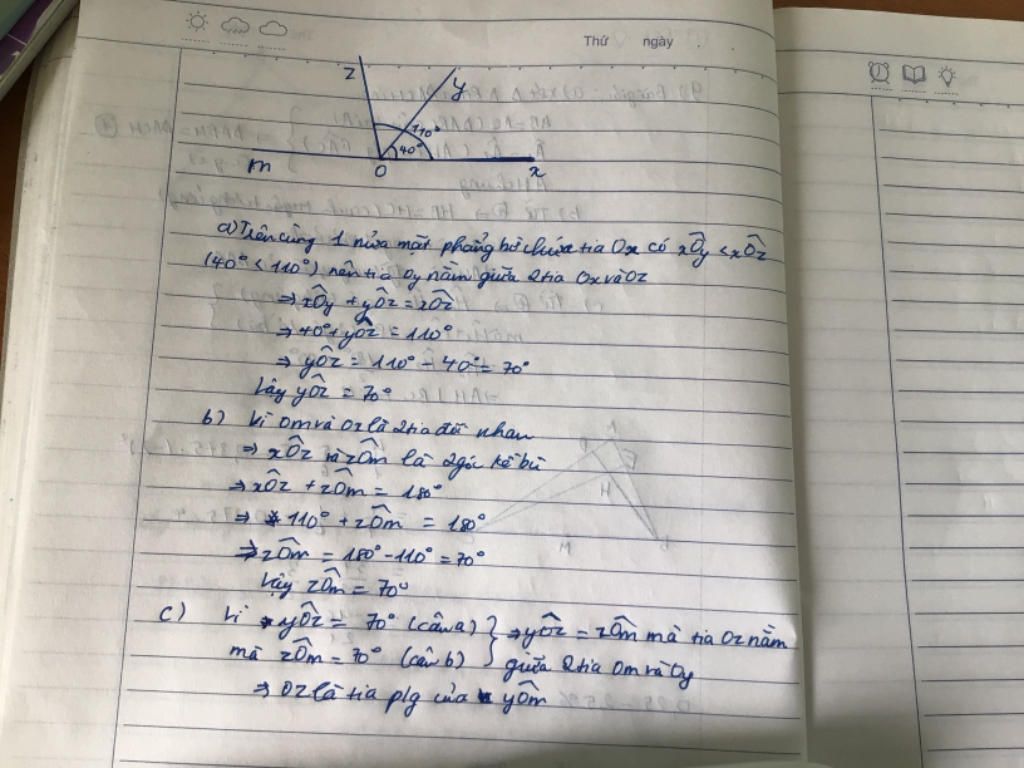 Thứ ngày
z
y
110°
40°
m
O
x
a) Trên cùng 1 nửa mặt phẳng bờ chứa tia Ox có xÔy < xÔz
(40° < 110°) nên tia Oy nằm giữa 2 tia Ox và Oz
⇒ xÔy + yÔz = xÔz
⇒ 40° + yÔz = 110°
⇒ yÔz = 110° - 40° = 70°
Vậy yÔz = 70°
b) Vì Om và Oz là 2 tia đối nhau
⇒ xÔz và zÔm là 2 góc kề bù
⇒ xÔz + zÔm = 180°
⇒ 110° + zÔm = 180°
⇒ zÔm = 180° - 110° = 70°
Vậy zÔm = 70°
c) Vì yÔz = 70° (câu a) } ⇒ yÔz = zÔm mà tia Oz nằm
mà zÔm = 70° (câu b) } giữa 2 tia Om và Oy
⇒ Oz là tia p/g của yÔm